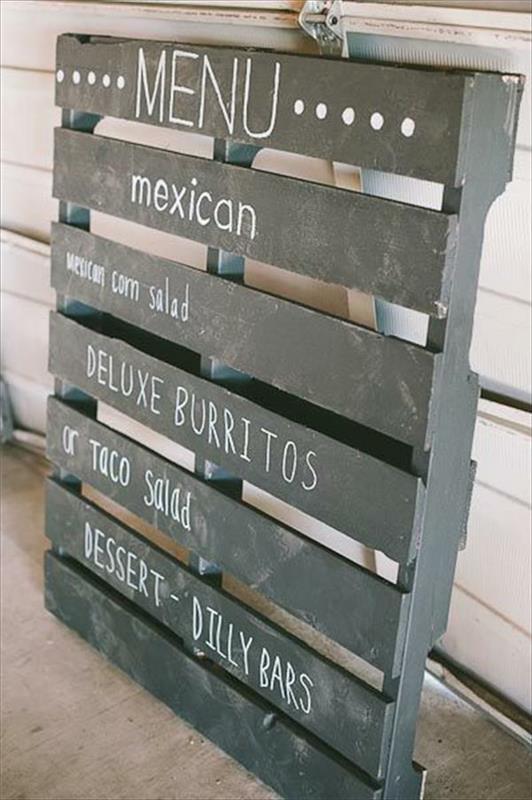 MENU
mexican
mexican corn salad
DELUXE BURRITOS
or Taco Salad
DESSERT - DILLY BARS